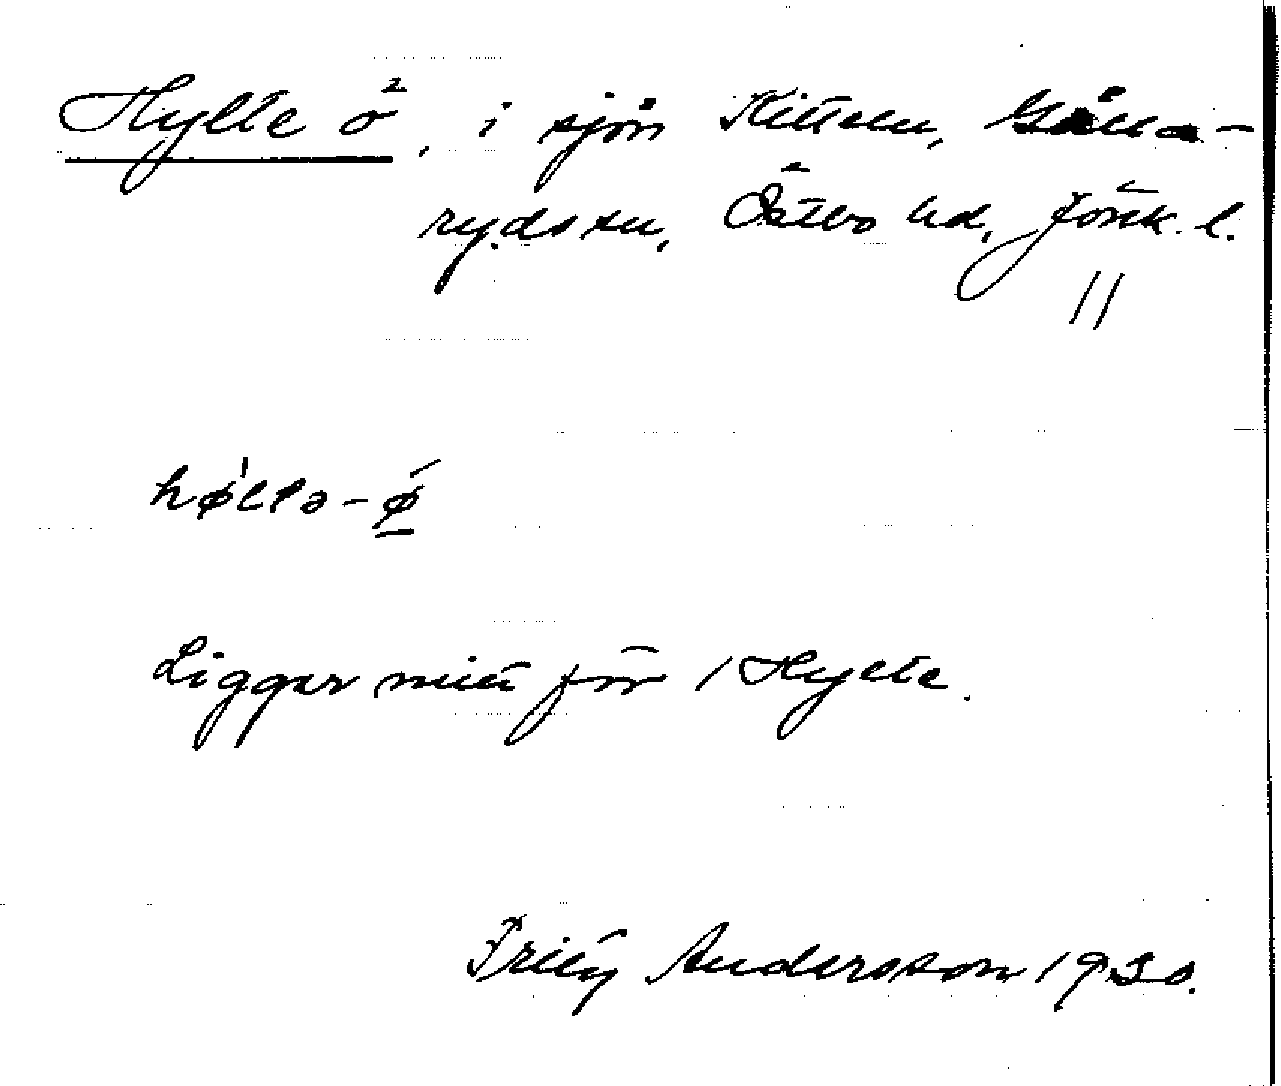 Hylte ö, i sjön Hitteln, Gålla-
rydss sn, Östbo hd, Jönk. l.
//
hø̀lta-ǿ
Ligger mitt för /Hylte.
Fritz Andersson 1930.